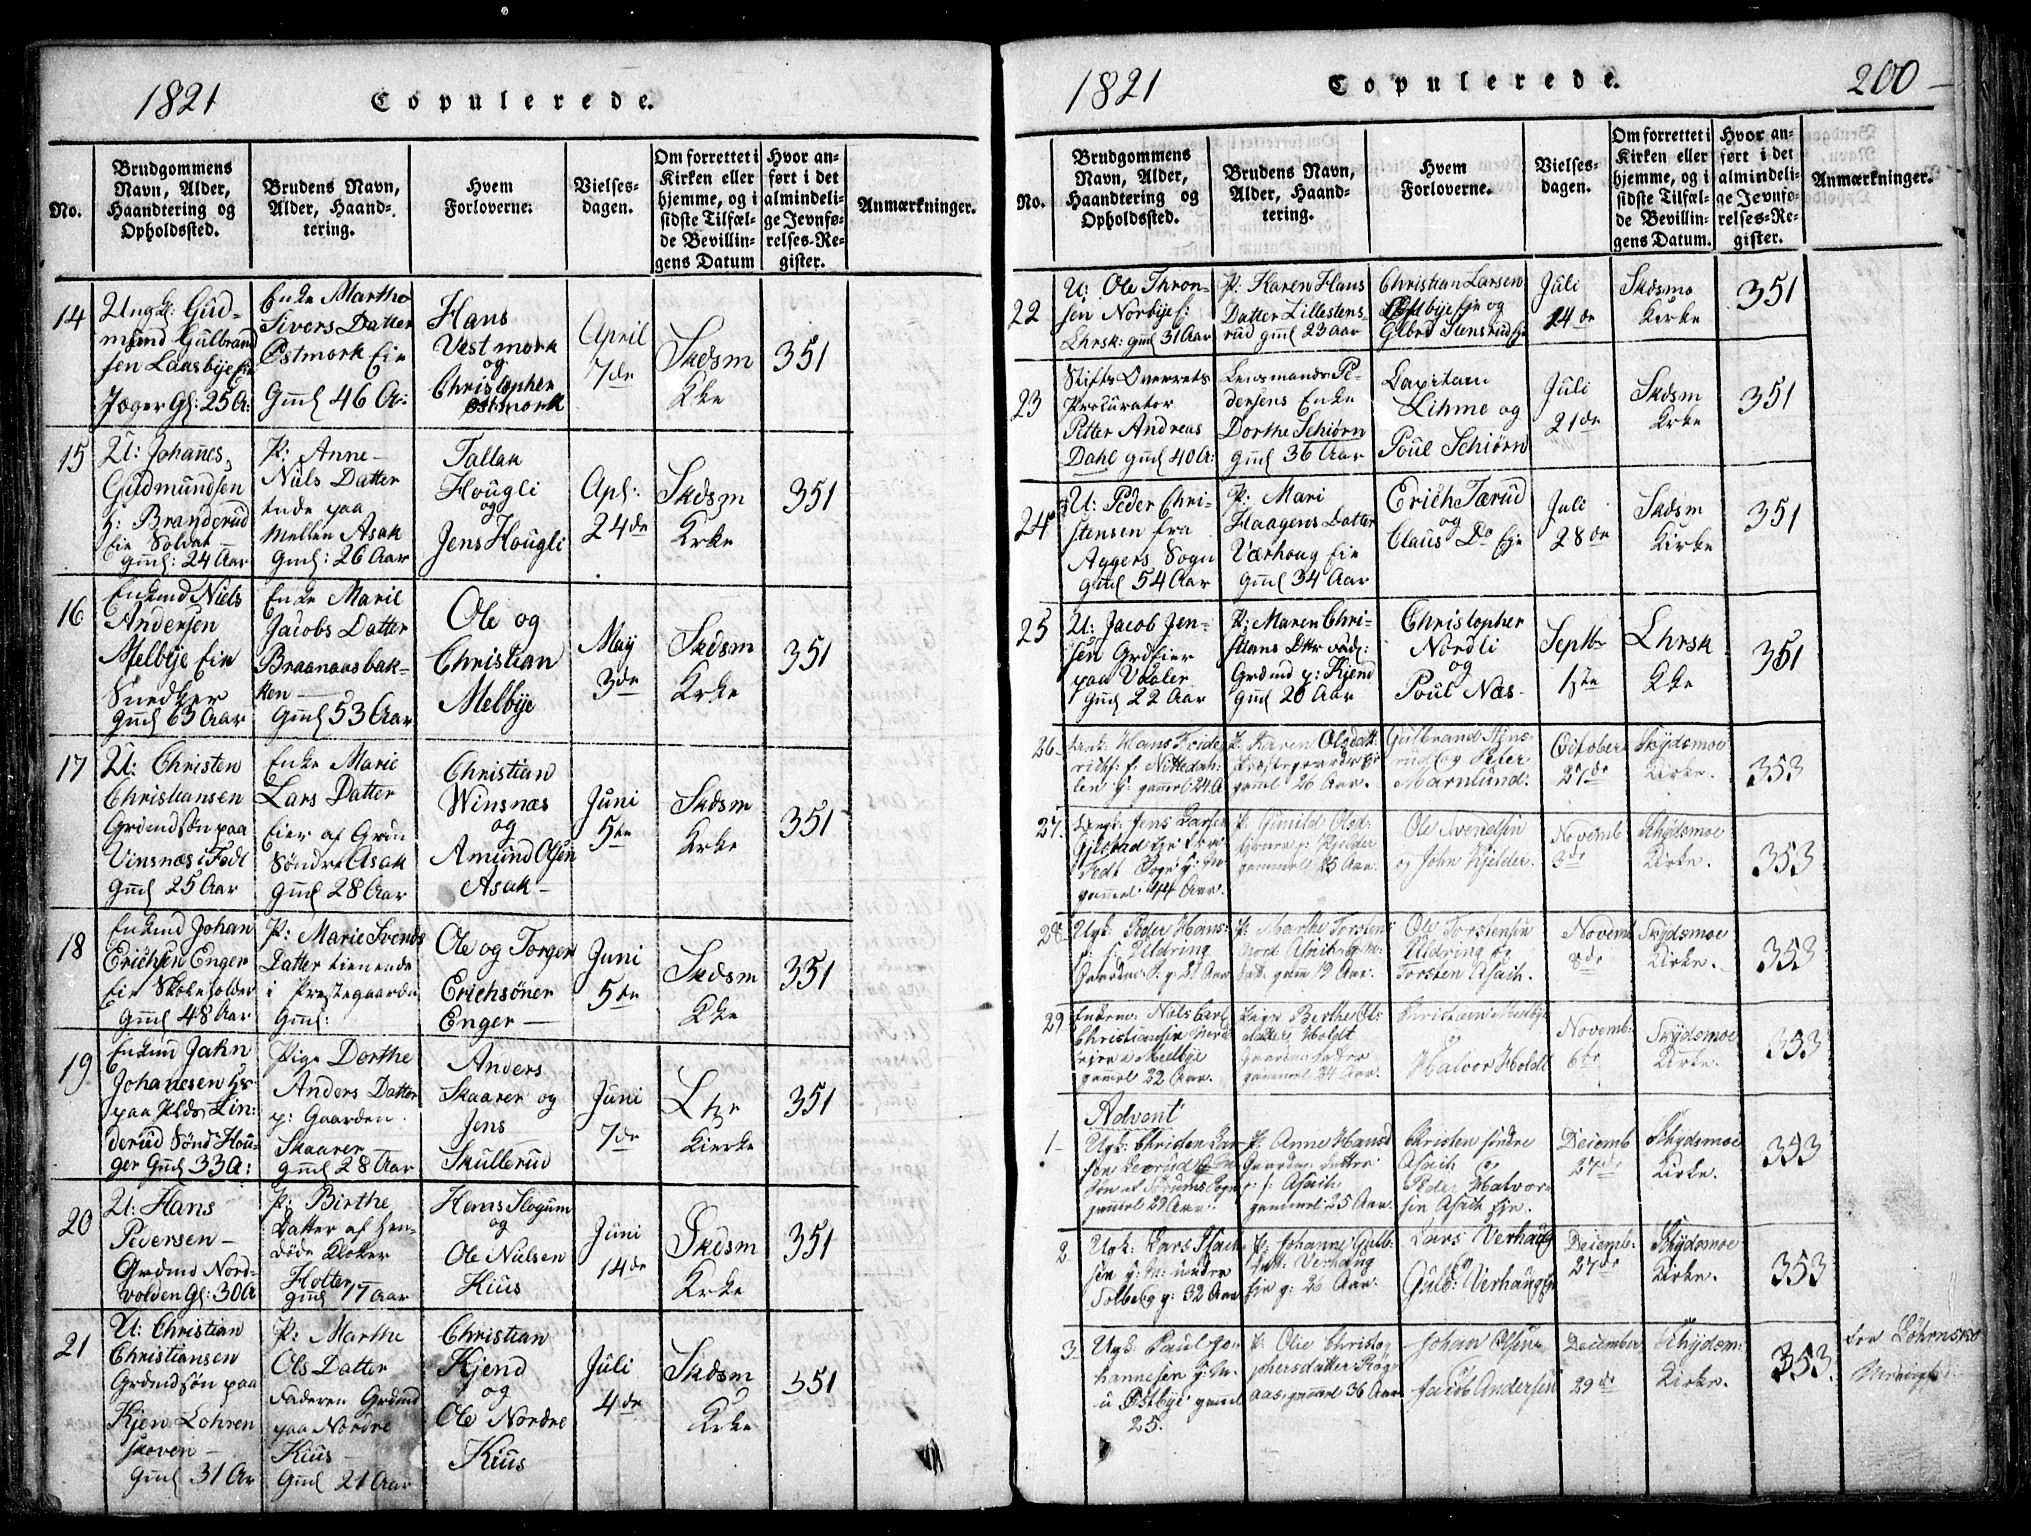 1821
Copulerede.
No.
Brudgommens
Navn, Alder,
Haandtering og
Opholdssted.
Brudens Navn,
Alder, Haand-
tering.
Hvem
Forloverne.
Vielses-
dagen.
Om forrettet i
Kirken eller
hjemme, og i
sidste Tilfæl-
de Bevillin-
gens Datum
Hvor an-
ført i det
almindeli-
ge Jevnfø-
relses-Re-
gister.
Anmærkninger.
14
Ungk: Gud-
mund Gulbrand
sen Laasbye Eie
Jæger Gl: 25 Ar:
Enke Marthe
Sivers Datter
Østmork Eie
Gml 46 Ar:
Hans
Vestmork
og
Christopher
Østmork
April
7de
Skdsm
Kke
351
15
U: Johanes
Gudmundsen
h: Branderud
Eie Soldat
gml: 24 Aar
P: Anne
Niels Datter
tnde paa
Mellem Asak
Gml: 26 Aar
Tallak
Hougli
og
Jens Hougli
Apl:
24de
Skdsm
Krke
351
16
Enkmd Niels
Andersen
Melbye Eie
Snedker
Gml 63 Aar
Enke Marie
Jacobs Datter
Braanaasbak-
ken
Gml 53 Aar
Ole og
Christian
Melbye
May
3de
Skdsm
Krke
351
17
U: Christen
Christiansen
Grdmdsøn paa
Vinsnæs i Født
gml 25 Aar
Enke Marie
Lars Datter
Eier af Grdn
Søndre Asak
Gml 28 Aar
Christian
Winsnæs
og
Amund Olsen
Asak
Juni
5te
Skdsm
Kirke
351
18
Enkmd Johan
Erichsen Enger
Eie Skoleholder
Gml 48 Aar
P: Marie Svends
Datter tienende
i Prestegaarden
Gml:
Ole og Torger
Erichsöner
Enger
Juni
5te
Skdsm
Kke
351
19
Enkm Jahn
Johanesen Hs
paa Plds Lin-
derud Sönd Hou-
ger Gml 33 A:
Pige Dorthe
Anders Datter
p: Gaarden
Skaarer
gml 28 Aar
Anders
Skaarer og
Jens
Skullerud
Juni
7de
Kierke
351
20
U: Hans
Pedersen
Grdmd Nord-
volden Gl: 30 A
P: Birthe
Datter af hen-
döde Kloker
Holter
gml 17 Aar
Hans Slogum
og
Ole Nielsen
Kius
Juni
14de
Skdsm
Krke
351
21
U: Christian
Christiansen
Grdmdsøn paa
Kjen Lohren
skoven
Gml 31 Ar
P: Marthe
Ols Datter
Faderen Grdmd
paa Nordre
Kius
Gml 21 Aar
Christian
Kjend
og
Ole Nordre
Kius
Juli
4de
Skdsm
Krke
351
1821
Copulerede.
200
No.
Brudgommens
Navn, Alder,
Haandtering og
Opholdssted.
Brudens Navn,
Alder, Haand-
tering.
Hvem
Forloverne.
Vielses-
dagen.
Om forrettet i
Kirken eller
hjemme, og i
sidste Tilfæl-
de Bevillin-
gens Datum.
Hvor an-
ført i det
almindeli-
ge Jevnfø-
relses-Re-
gister.
Anmærkninger.
22
U: Ole Thron-
sen Norbye f:
Lhrsk: gml 31 Aar
P: Karen Hans
Datter Lillestens
rud gml 23 aar
Christian Larsen
og
Glbrd Stensrud Eje
Juli
14de
Skdsmo
Kirke
351
23
Stifts Overrets
Procurator
Petter Andreas
Dahl gml 40 A:
Lensmands Pe-
dersens Enke
Dorthe Schiørn
gml 36 Aar
Capitain
Lihme og
Poul Schiørn
Juli
21de
Skdsm
Krke
351
24
U: Peder Chri-
stensen fra
Aggers Sogn
Gml 54 Aar
P: Mari
Haagens Datter
Værhoug Eie
Gml 34 Aar
Erich Tærud
og
Claus Do Eje
Juli
28de
Skdsm
Kirke
351
25
U: Jacob Jen-
sen Grdeier
paa Vaaler
Gml 22 Aar
P: Maren Chri-
stians Dttr
Grdmd p: Kjend
gml 20 Aar
Christopher
Nordli
og
Poul Næs
Septbr
1ste
Lhrsk
Kke
351
26.
Hans Fride-
richs: f: Nittedah-
len gammel: 24 A
P: Karen Olsdatt:
Præstegaards Eie
gammel 26 Aar.
Gulbrand
rud og Peter
Marnlund:
October
27de
Skydsmoe
Kirke.
353
27.
Ungk: Jens Larsen
gammel: 44 Aar.
P: Gunild Olsd:
p: Hjelder
gammel 25 Aar.
Ole Svendsen
og John Hjelder.
Novemb
3de
Schydsmoe
Kirke.
353
28
Ugk: Peder Hans:
f: Uldring
P: Marthe Torstens
gam 19 Aar.
Ole Torstensen
Uldring og
Torsten Asach.
Novemb
8de
Skydsmoe
Kirke.
353
29
Niels Carl
Christiansen
Melbye
gammel 22 Aar.
Pigen Berthe Ols
datter Holdt
Gaardm datter
gammel 24 Aar.
Christian Melbye
og
Halvor Holdt
Novemb:
6te
Skydsmoe
Kirke.
353
Advent
1
Ugk: Christen Lar-
sen
gammel 29 Aar.
P: Anne Hansd
Gaardm datter
p: Asach
gammel 25 Aar.
Christen söndre
Asach
og
Peder Halvor-
sen Asach Eje.
Decemb
27de
Schydsmoe
Kirke.
353
2
Ugk: Lars Isach-
sen
Solberg g: 32 Aar
P: Johanne Gulb-
datt: Verhaug
Eie g: 26 Aar.
Lars Verhaug
og
Gulb: Verhaug Eje
Decemb:
27de
Schydsmoe
Kirke.
353
3
Ugk: Paul Jo-
hannesen
u Østbye gammel
25.
P: Olie Christo-
phersdatter Rog-
aas gammel 36 Aar
Johan Olsen
og
Jacob Andersen
December
29de
Schydsm:
Kirke.
353.